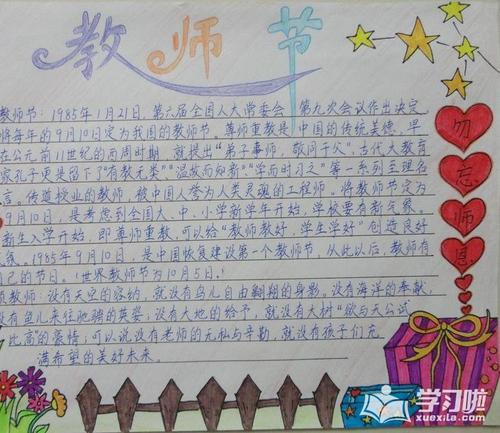 教师节
教师节：1985年1月21日，第六届全国人大常委会 第九次会议作出决定
将每年的9月10日定为我国的教师节。尊师重教是中国的传统美德，早
在公元前11世纪的西周时期，就提出"弟子事师，敬同于父"。古代大教育
家孔子更是留下了"有教无类""温故而知新""学而时习之"等一系列至理名
言。传道授业的教师，被中国人誉为人类灵魂的工程师。将教师节定为
9月10日，是考虑到全国大、中、小学新学年开始，学校要有新气象。
新生入学开始，即尊师重教，可以给"教师教好，学生学好"创造良好
气氛。1985年9月10日，是中国恢复建设第一个教师节，从此以后，教师有
自己的节日。（世界教师节为10月5日。）
教师：没有天空的容纳，就没有鸟儿自由翱翔的身影。没有海洋的奉献，
没有鱼儿来往驰骋的英姿；没有大地的给予，就没有大树"欲与天公试
比高"的豪情；可以说没有老师的无私与辛勤，就没有孩子们充
满希望的美好未来。
勿
忘
师
恩
学习啦
xuexila.com